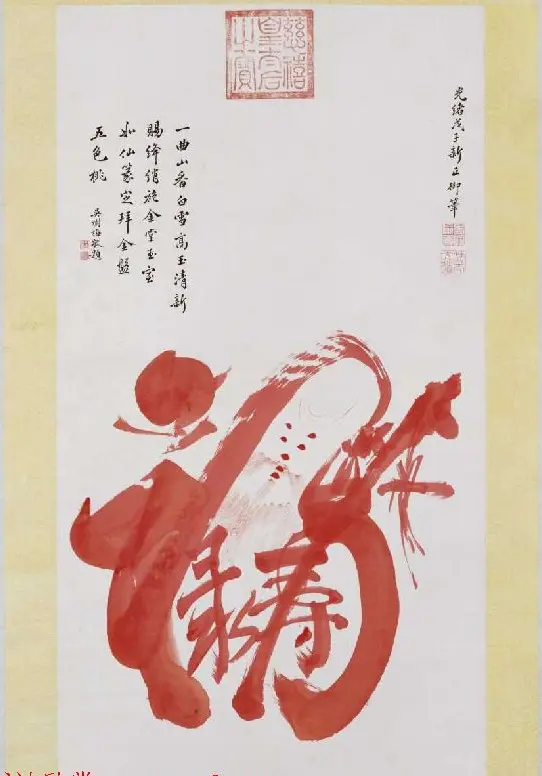 慈禧皇太后之寶
光緒戊子新正御筆
一曲山香白雪高玉清新
賜絳綃袍金堂玉室
仙篆定拜金盤
五色桃
吳樹梅敬題
祿壽